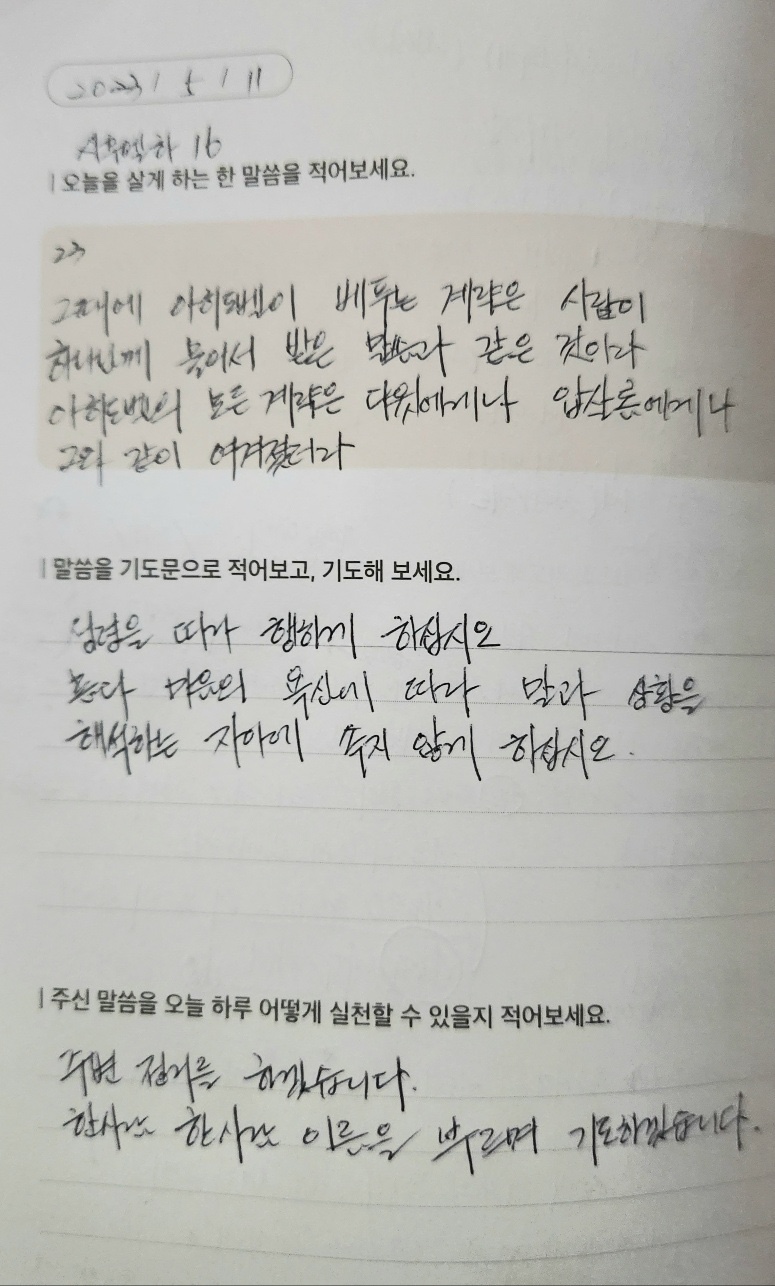 2023 / 5 / 11
사무엘하 16
| 오늘을 살게 하는 한 말씀을 적어보세요.
23
그때에 아히도벨이 베푸는 계략은 사람이
하나님께 물어서 받은 말씀과 같은 것이라
아히도벨의 모든 계략은 다윗에게나 압살롬에게나
그와 같이 여겨졌더라
| 말씀을 기도문으로 적어보고, 기도해 보세요.
따라 행하게 하십시오
마음의 욕심에 따라 말과 상황을
해석하는 자아에 속지 않게 하십시오.
| 주신 말씀을 오늘 하루 어떻게 실천할 수 있을지 적어보세요.
주변 정리를 하겠습니다.
한사람 한사람 이름을 부르며 기도하겠습니다.